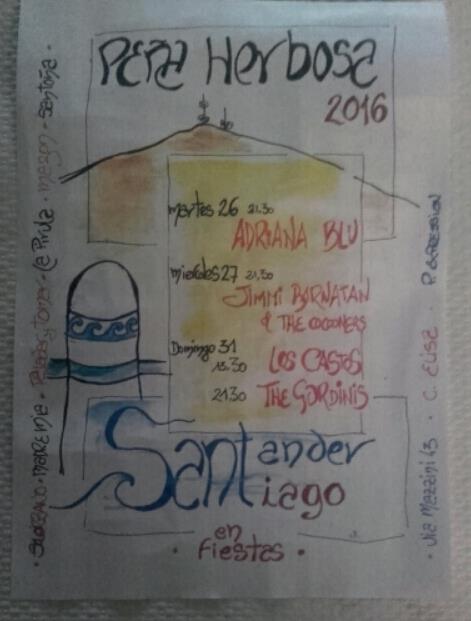 Peña Herbosa
2016
martes 26 21.30
ADRIANA BLU
miercoles 27 21.30
JIMMI BARNATAN
& THE COCOONERS
Domingo 31
13.30 LOS CASTOS
21.30 THE GORDINIS
Santander
Santiago
en
fiestas
meson - Santoña
Via Mazzini 13 · C. Elisa · P. Expresion